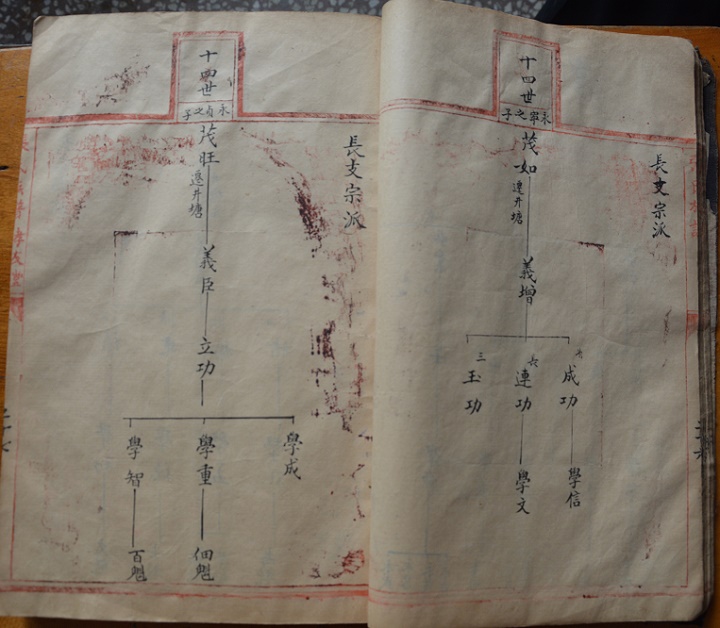 長支宗派
十四世
永寧之子
茂如
遷井塘
義增
成功
連功
三
玉功
學信
學文
長支宗派
十四世
永貞之子
茂旺
遷井塘
義臣
立功
學成
學重
學智
佃魁
百魁